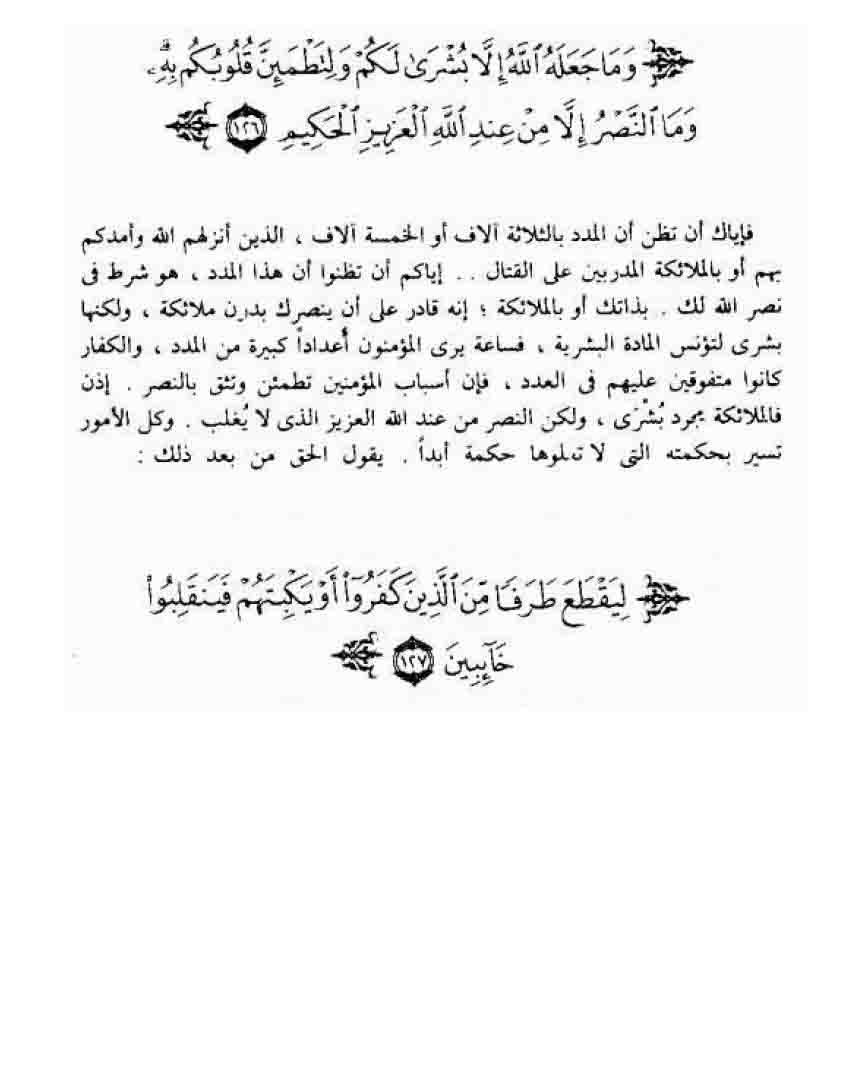 ﴿ وَمَا جَعَلَهُ ٱللَّهُ إِلَّا بُشْرَىٰ لَكُمْ وَلِتَطْمَئِنَّ قُلُوبُكُم بِهِۦۗ
وَمَا ٱلنَّصْرُ إِلَّا مِنْ عِندِ ٱللَّهِ ٱلْعَزِيزِ ٱلْحَكِيمِ ١٢٦ ﴾
فإياك أن تظن أن المدد بالثلاثة آلاف أو الخمسة آلاف ، الذين أنزلهم الله وأمدكم
بهم أو بالملائكة المدربين على القتال . . إياكم أن تظنوا أن هذا المدد ، هو شرط فى
نصر الله لك . بذاتك أو بالملائكة ؛ إنه قادر على أن ينصرك بدون ملائكة ، ولكنها
بشرى لتؤنس المادة البشرية ، فساعة يرى المؤمنون أعداداً كبيرة من المدد ، والكفار
كانوا متفوقين عليهم فى العدد ، فإن أسباب المؤمنين تطمئن وتثق بالنصر . إذن
فالملائكة مجرد بُشْرَى ، ولكن النصر من عند الله العزيز الذى لا يُغلب . وكل الأمور
تسير بحكمته التى لا تعلوها حكمة أبداً . يقول الحق من بعد ذلك :
﴿ لِيَقْطَعَ طَرَفًا مِّنَ ٱلَّذِينَ كَفَرُوٓا۟ أَوْ يَكْبِتَهُمْ فَيَنقَلِبُوا۟
خَآئِبِينَ ١٢٧ ﴾